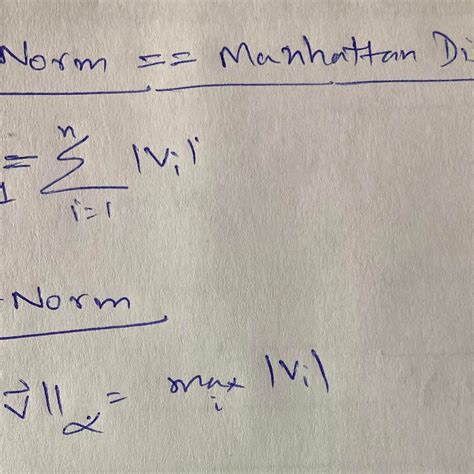 Norm == Manhattan Di
1 = n Σ i=1 |Vi|'
-Norm
V⃗||∝ = max i |Vi|